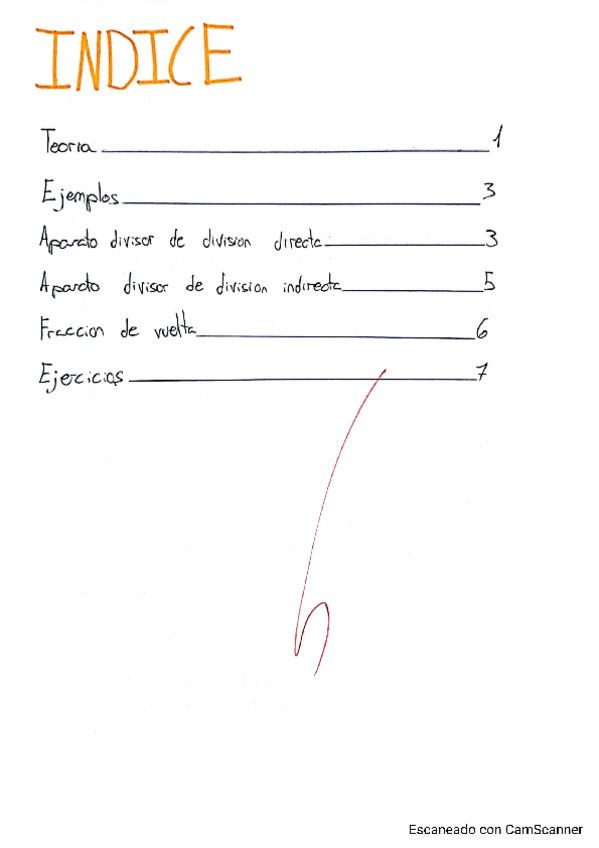 INDICE
Teoria 1
Ejemplos 3
Aparato divisor de division directa 3
Aparato divisor de division indirecta 5
Fraccion de vuelta 6
Ejercicios 7
Escaneado con CamScanner